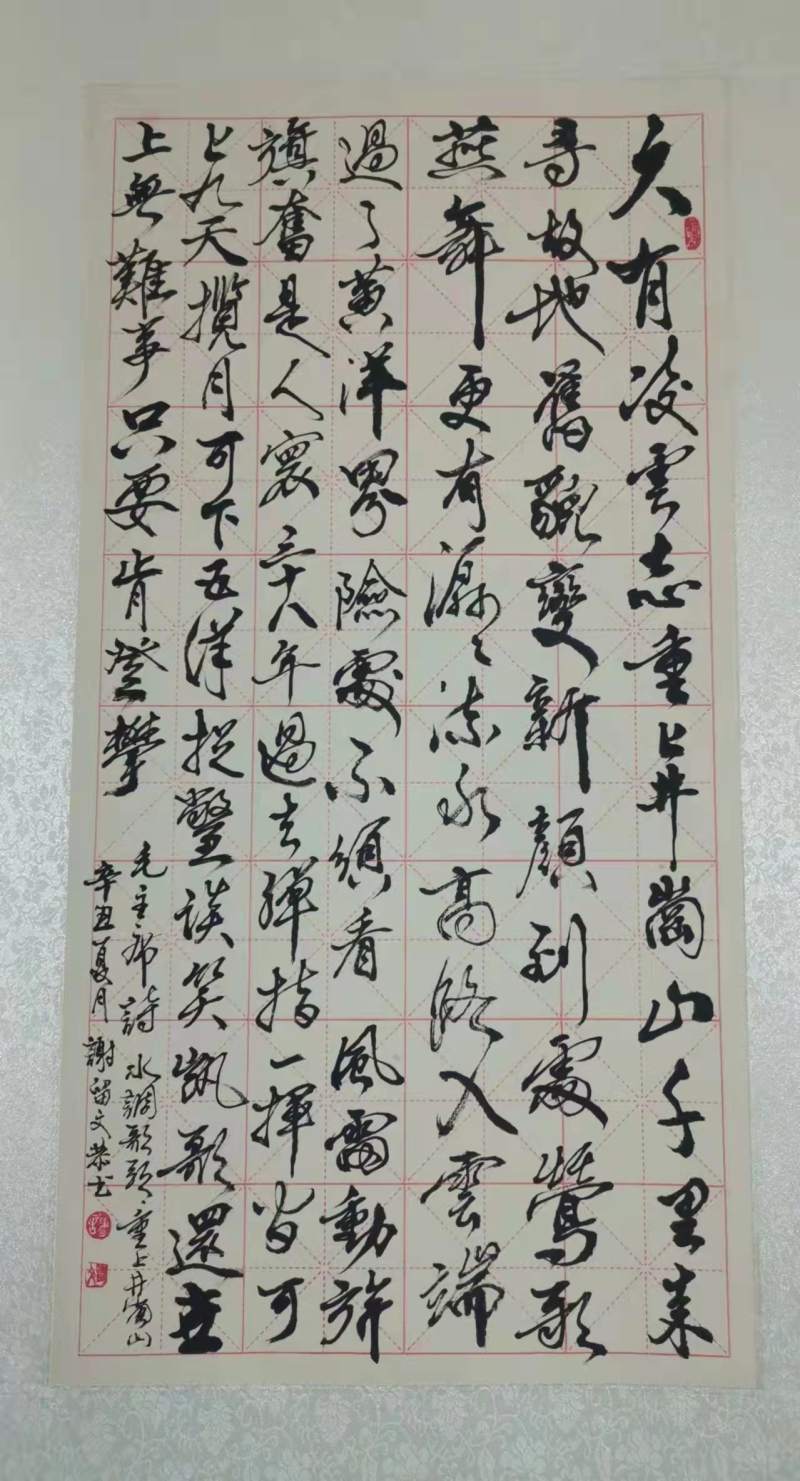 久有凌雲志重上井崗山千里来
尋故地舊貌變新顔到處鶯歌
燕舞更有潺々流水高路入雲端
過了黄洋界險處不須看風雷動旌
旗奮是人寰三十八年過去彈指一揮皆可
上九天攬月可下五洋捉鱉談笑凱歌還世
上無難事只要肯登攀
毛主席詩 水調歌頭·重上井崗山
辛丑夏月 謝留文恭书